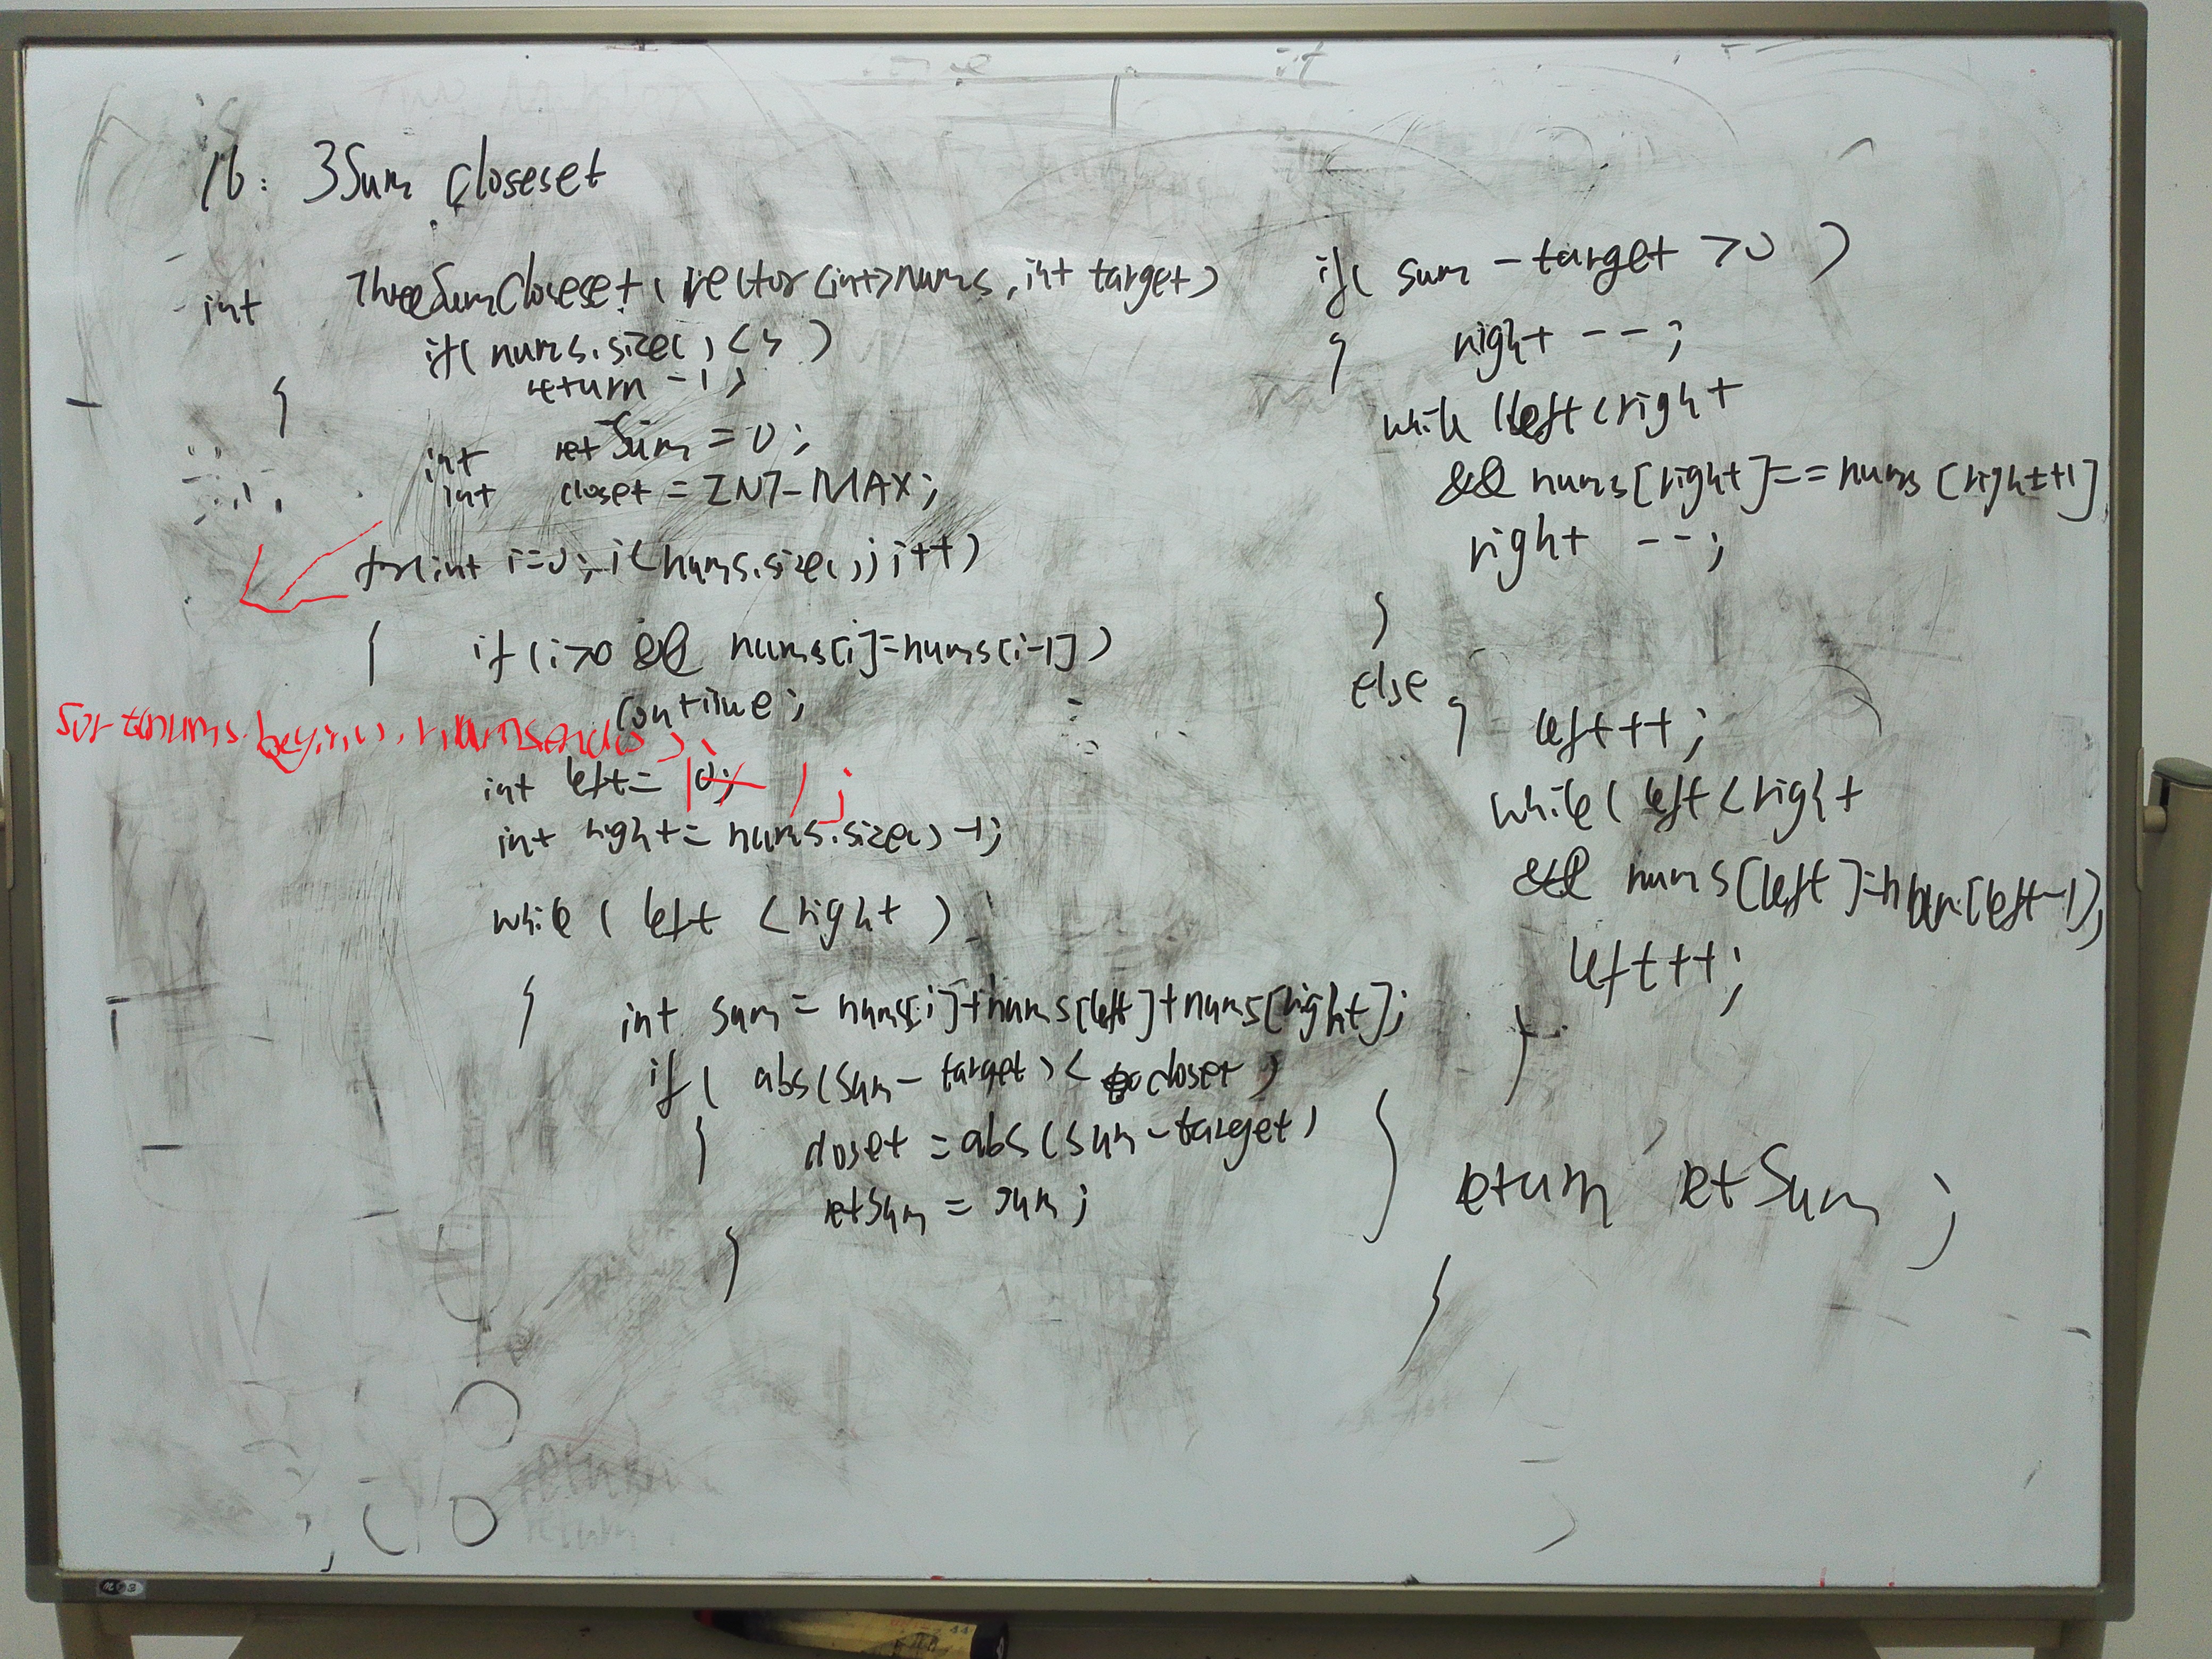 16: 3Sum closeset
int ThreeSumCloseset(vector<int>nums, int target)
{ if(nums.size()<3)
return -1;
int retSum = 0;
int closet = INT_MAX;
for(int i=0; i<nums.size(); i++)
{ if(i>0 && nums[i]=nums[i-1])
continue;
sort(nums.begin(), nums.end());
int left= 0; 1;
int right= nums.size()-1;
while( left <right )
{ int sum = nums[i]+nums[left]+nums[right];
if( abs(sum- target)< closet )
{ closet = abs(sum-target)
retSum = sum;
}
if( sum -target >0 )
{ right --;
while (left<right
&& nums[right]==nums[right+1]
right --;
}
else { left++;
while( left<right
&& nums[left]=num[left-1];
left++;
}
} return retSum ;
}